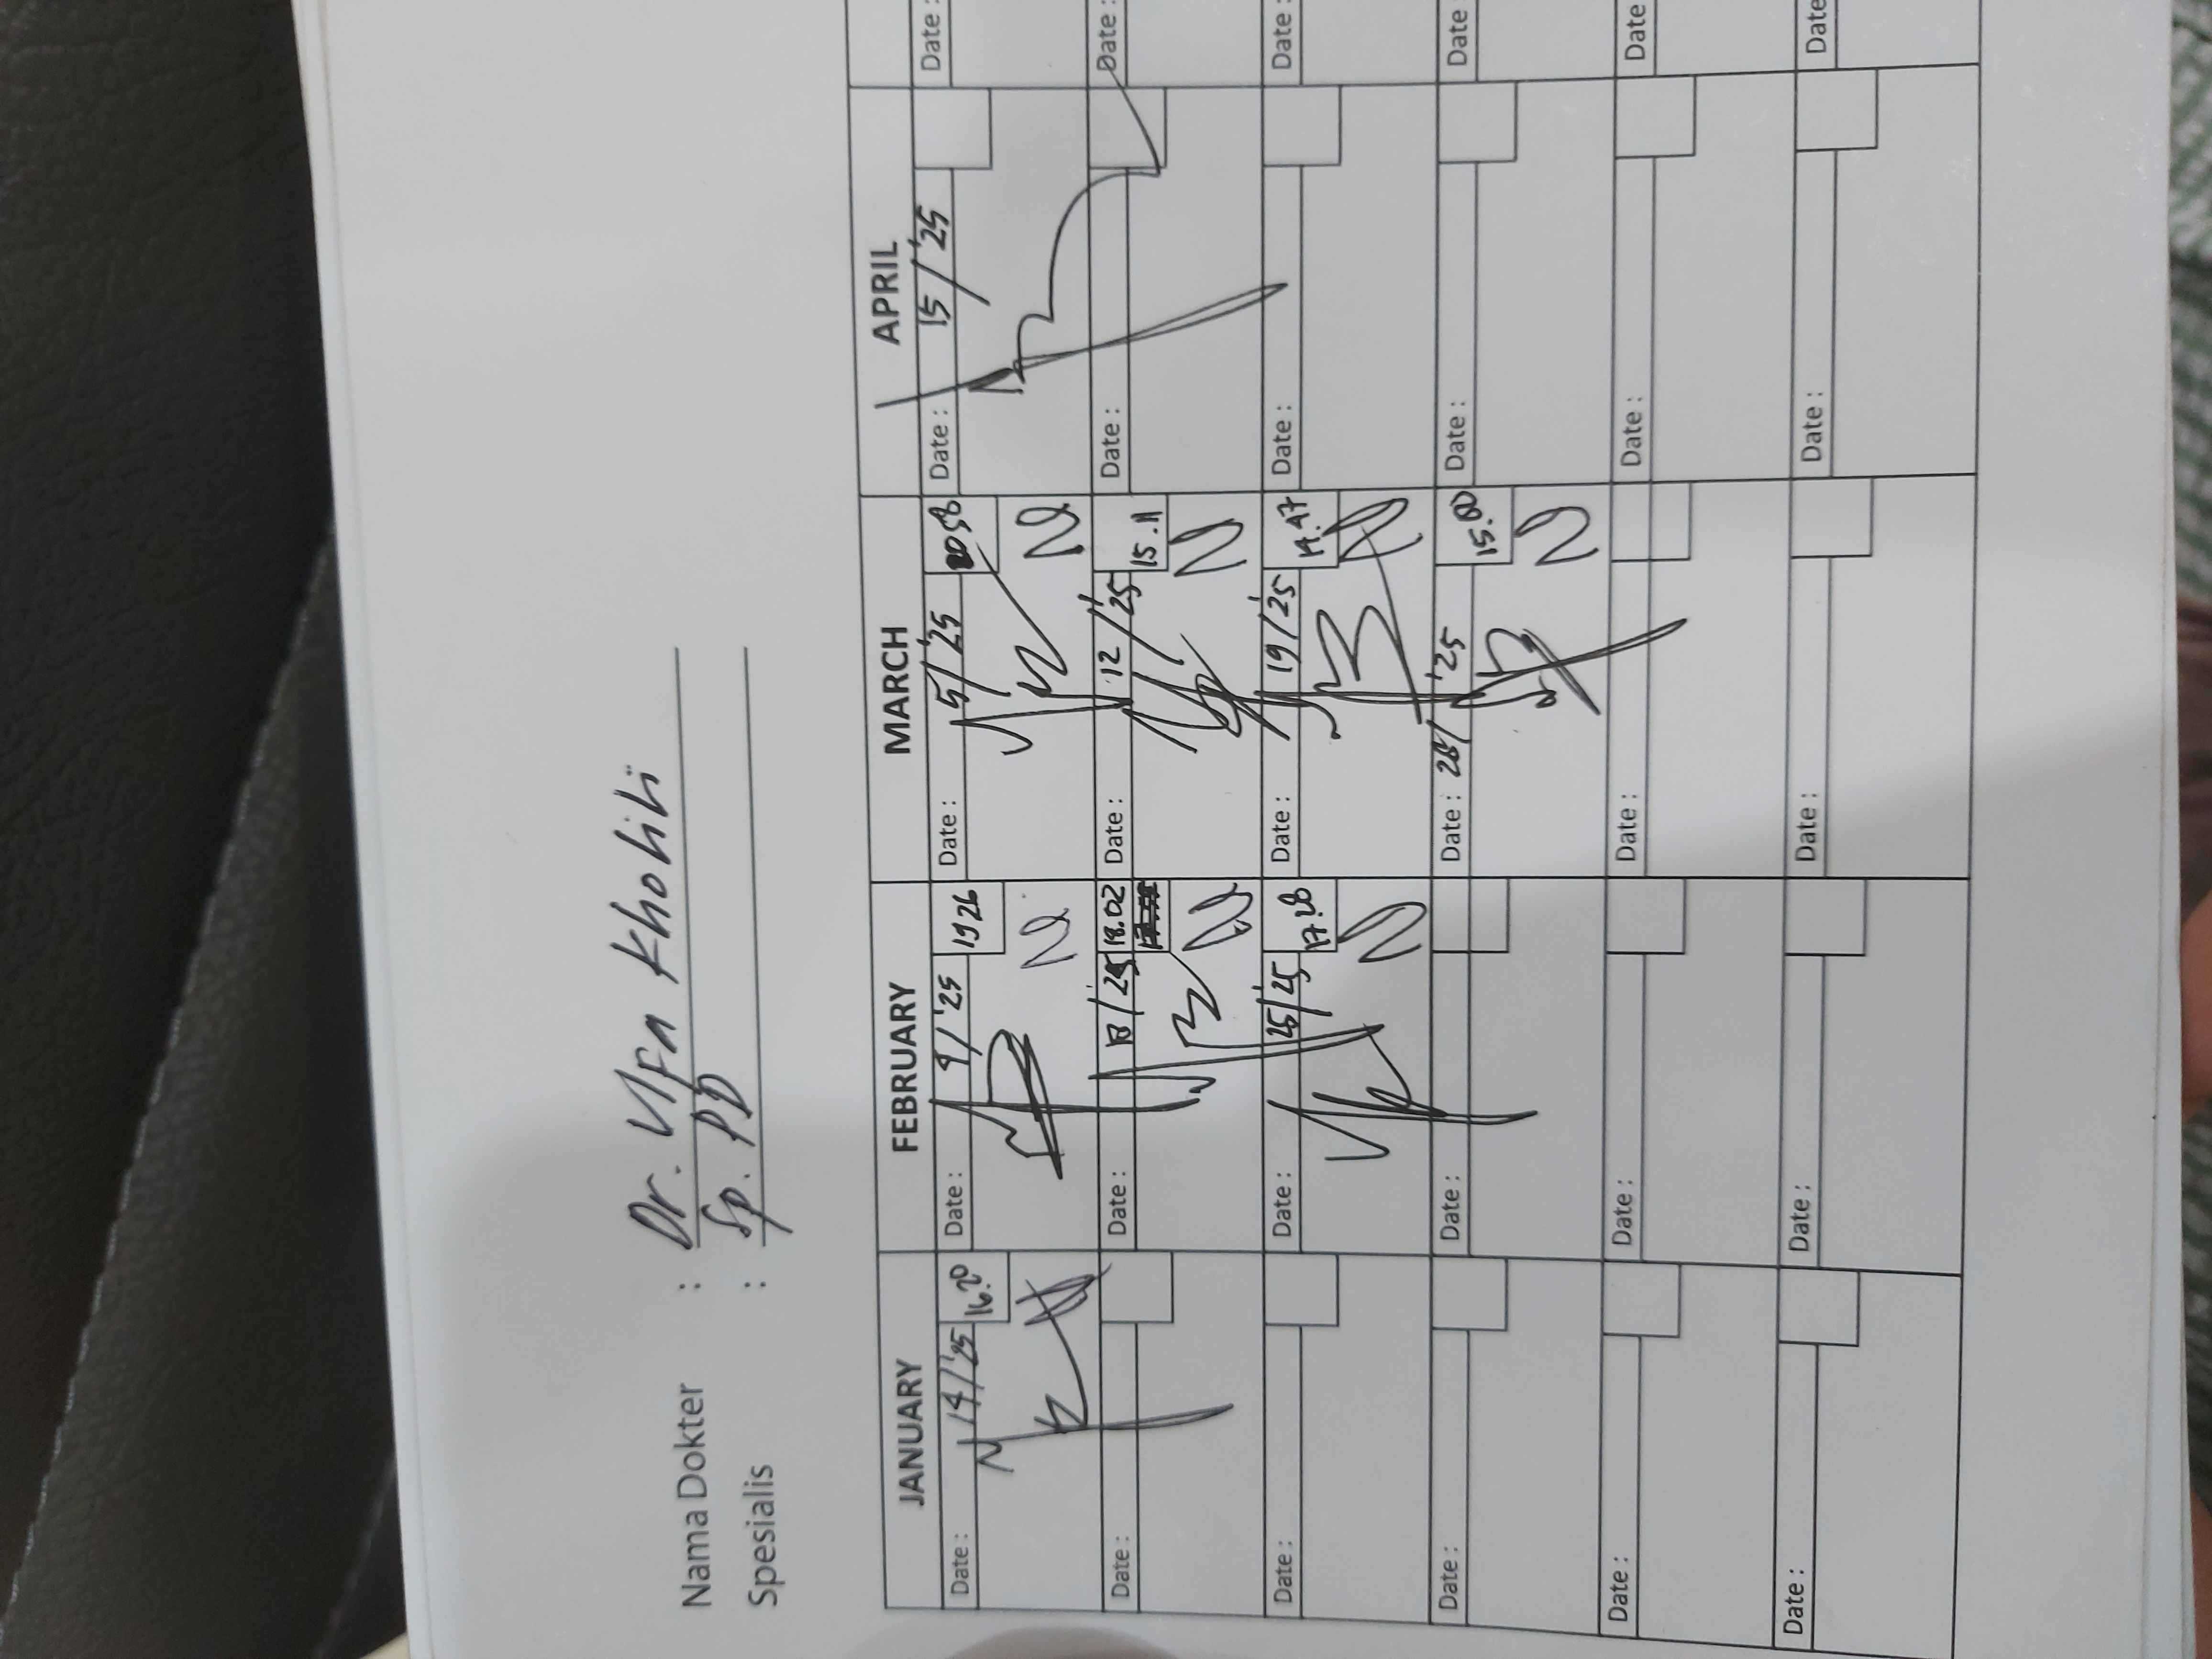 Nama Dokter : Dr. Ufa Kholili
Spesialis : Sp. PD
JANUARY FEBRUARY MARCH APRIL
Date : 14/'25 16.20 Date : 4/'25 19 26 Date : 5/'25 Date : 15/'25 Date :
Date : Date : 18/'25 18.02 Date : 12/'25 15.11 Date : Date :
Date : Date : 25/'25 17.28 Date : 19/'25 14.47 Date : Date :
Date : Date : Date : 26/'25 15.00 Date : Date
Date : Date : Date : Date : Date
Date : Date : Date : Date : Date